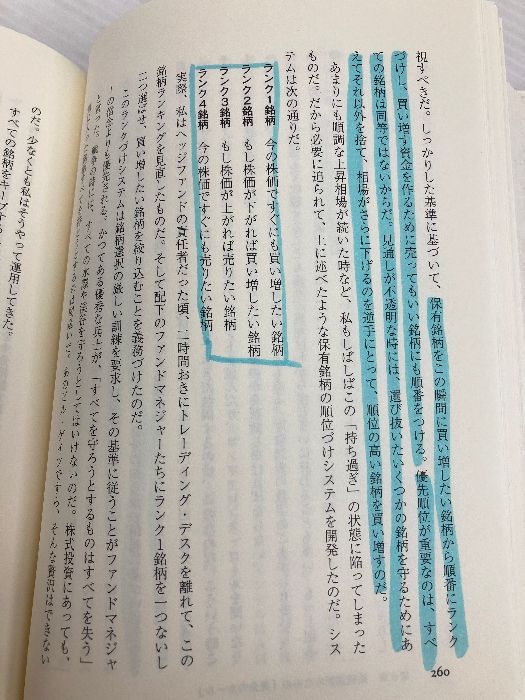 視すべきだ。しっかりした基準に基づいて、保有銘柄をこの瞬間に買い増したい銘柄から順番にランク
づけし、買い増す資金を作るために売ってもいい銘柄にも順番をつける。優先順位が重要なのは、すべ
ての銘柄は同等ではないからだ。見通しが不透明な時には、選び抜いたいくつかの銘柄を守るためにあ
えてそれ以外を捨て、相場がさらに下げるのを逆手にとって、順位の高い銘柄を買い増すのだ。
あまりにも順調な上昇相場が続いた時など、私もしばしばこの「持ち過ぎ」の状態に陥ってしまった
ものだ。だから必要に迫られて、上に述べたような保有銘柄の順位づけシステムを開発したのだ。シス
テムは次の通りだ。
ランク1銘柄 今の株価ですぐにも買い増したい銘柄
ランク2銘柄 もし株価が下がれば買い増したい銘柄
ランク3銘柄 もし株価が上がれば売りたい銘柄
ランク4銘柄 今の株価ですぐにも売りたい銘柄
実際、私はヘッジファンドの責任者だった頃、二時間おきにトレーディング・デスクを離れて、この
銘柄ランキングを見直したものだ。そして配下のファンドマネジャーたちにランク1銘柄を一つないし
二つ選ばせ、買い増したい銘柄を絞り込むことを義務づけたのだ。
このランクづけシステムは銘柄選択の厳しい訓練を要求し、その基準に従うことがファンドマネジャ
ーの信念よりも優先される。かつてある優秀な兵士が、「すべてを守ろうとするものはすべてを失う」
すべての
を守ろうとしてはいけないのだ。株式投資にあっても、
そんな贅沢はできない
のだ。少なくとも私はそうやって運用してきた。
すべての銘柄をキープする
260